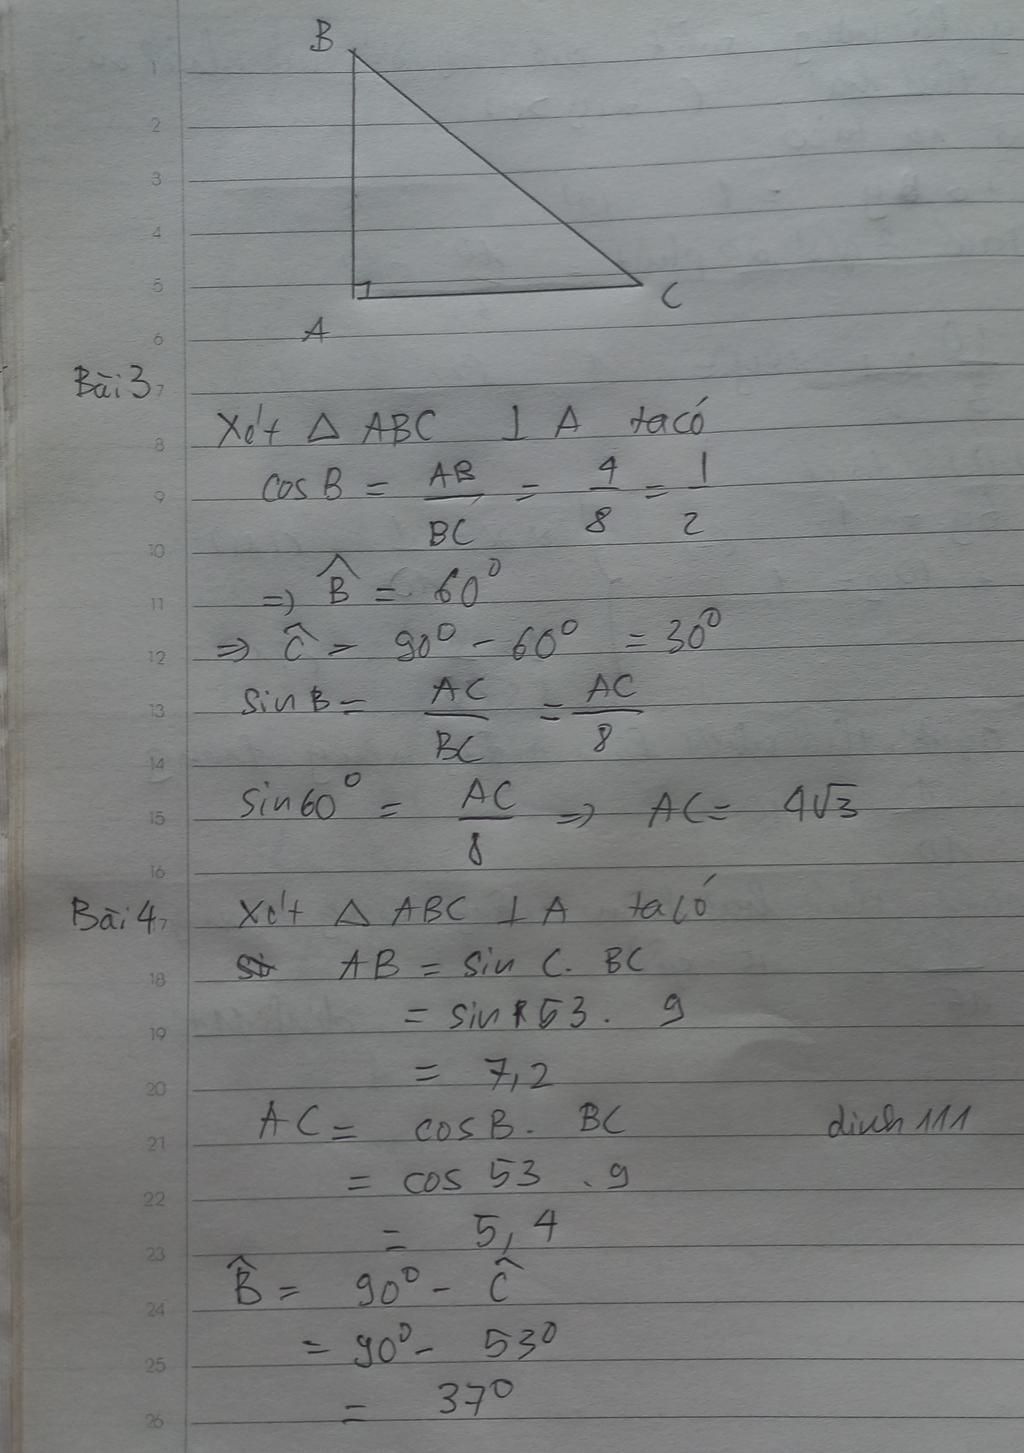 B
1
2
3
4
5
C
A
6
Bài 3 7
Xét △ ABC ⊥ A ta có
8
cos B = AB/BC = 4/8 = 1/2
9
10
=> B̂ = 60⁰
11
=> Ĉ = 90⁰ - 60⁰ = 30⁰
12
sin B = AC/BC = AC/8
13
14
sin 60⁰ = AC/8 => AC = 4√3
15
16
Bài 4 7 Xét △ ABC ⊥ A ta có
AB = sin C. BC
18
= sin 53. 9
19
= 7,2
20
AC = cos B. BC dinh 111
21
= cos 53 . 9
22
= 5,4
23
B̂ = 90⁰ - Ĉ
24
= 90⁰ - 53⁰
25
= 37⁰
26